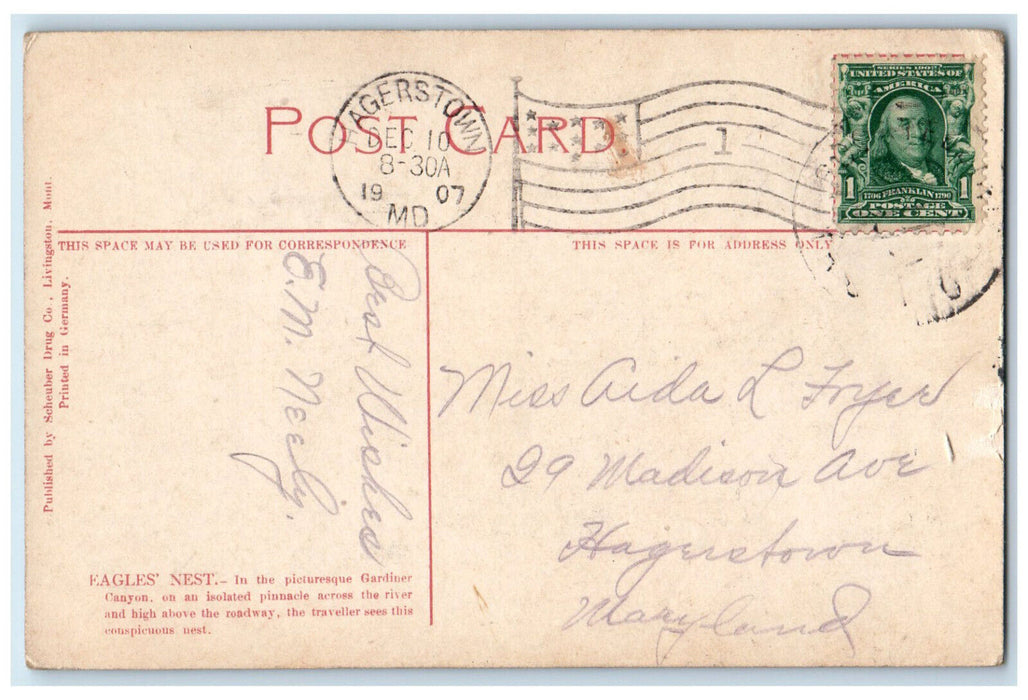 POST CARD
HAGERSTOWN
DEC 10
8-30A
19 07
MD
1
SERIES 1902
UNITED STATES OF
AMERICA
1 1706 FRANKLIN 1790 1
POSTAGE
ONE CENT
THIS SPACE MAY BE USED FOR CORRESPONDENCE
THIS SPACE IS FOR ADDRESS ONLY
Best Wishes
E. M. Neely.
Miss Aida L Fryer
29 Madison Ave
Hagerstown
Maryland
EAGLES' NEST.— In the picturesque Gardiner
Canyon, on an isolated pinnacle across the river
and high above the roadway, the traveller sees this
conspicuous nest.
Published by Scheuber Drug Co., Livingston, Mont.
Printed in Germany.